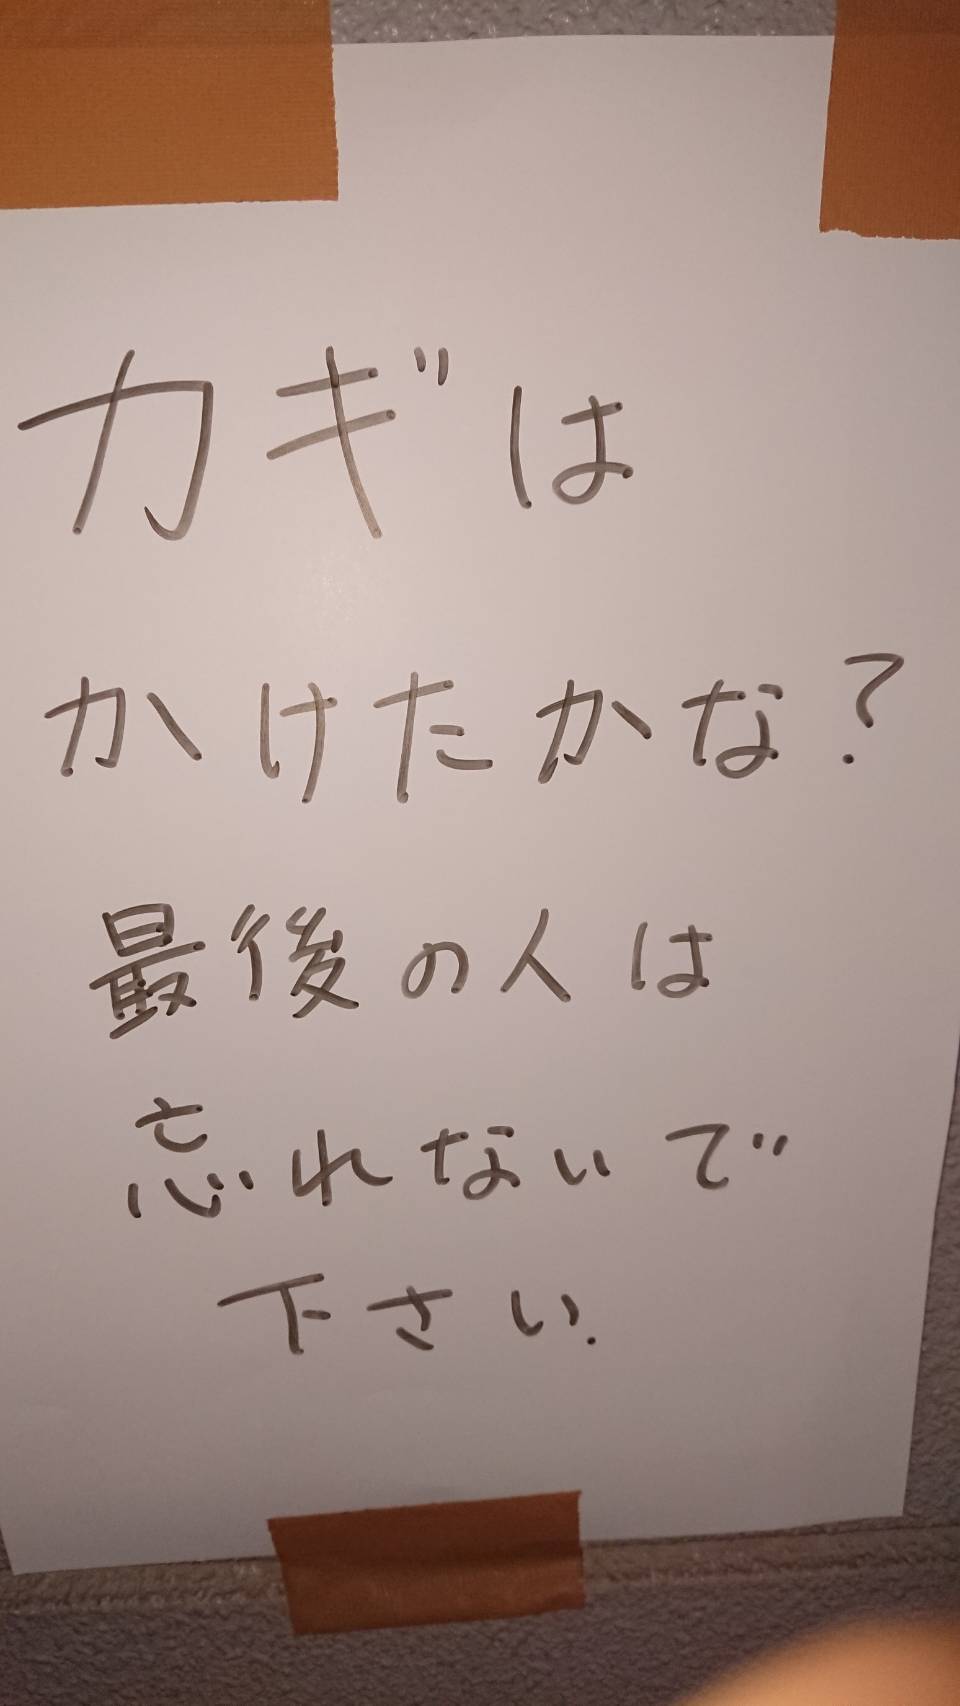 カギは
かけたかな?
最後の人は
忘れないで
下さい.